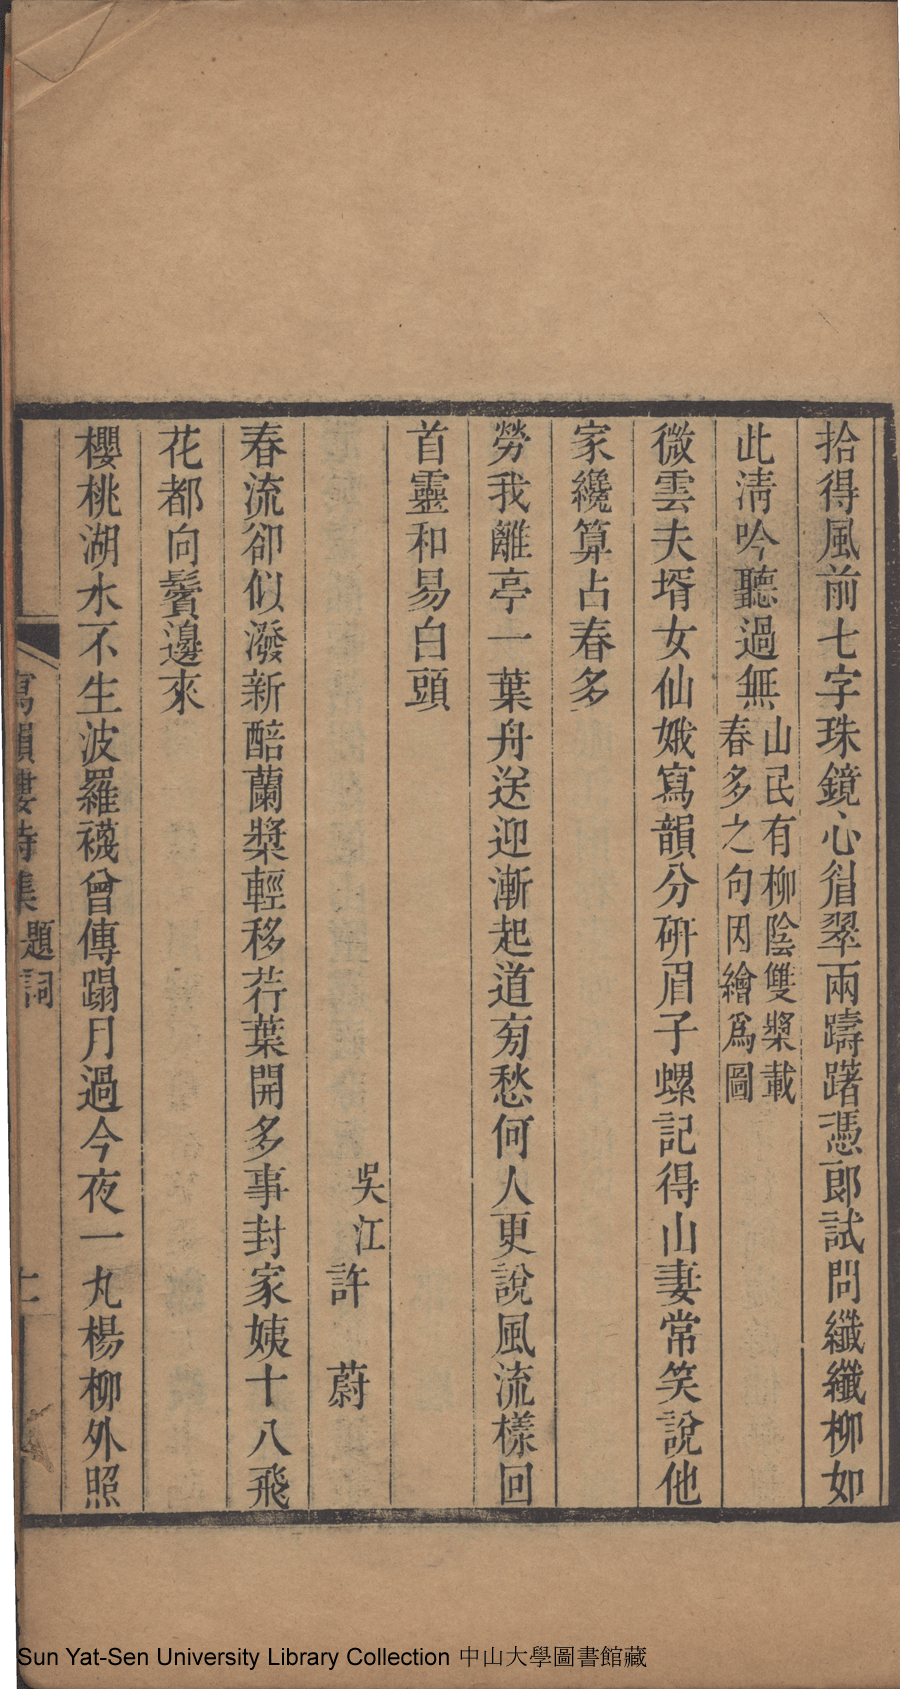 拾得風前七字珠鏡心眉翠兩躊躇憑郎試問纖纖柳如
此淸吟聽過無山民有柳陰雙槳載
春多之句因繪爲圖
微雲夫壻女仙娥寫韻分硏眉子螺記得山妻常笑說他
家纔算占春多
勞我離亭一葉舟送迎漸起道旁愁何人更說風流樣回
首靈和易白頭
吳江許　蔚
春流卻似潑新醅蘭槳輕移荇葉開多事封家姨十八飛
花都向鬢邊來
櫻桃湖水不生波羅襪曾傳蹋月過今夜一丸楊柳外照
寫韻樓詩集題詞
Sun Yat-Sen University Library Collection 中山大學圖書館藏